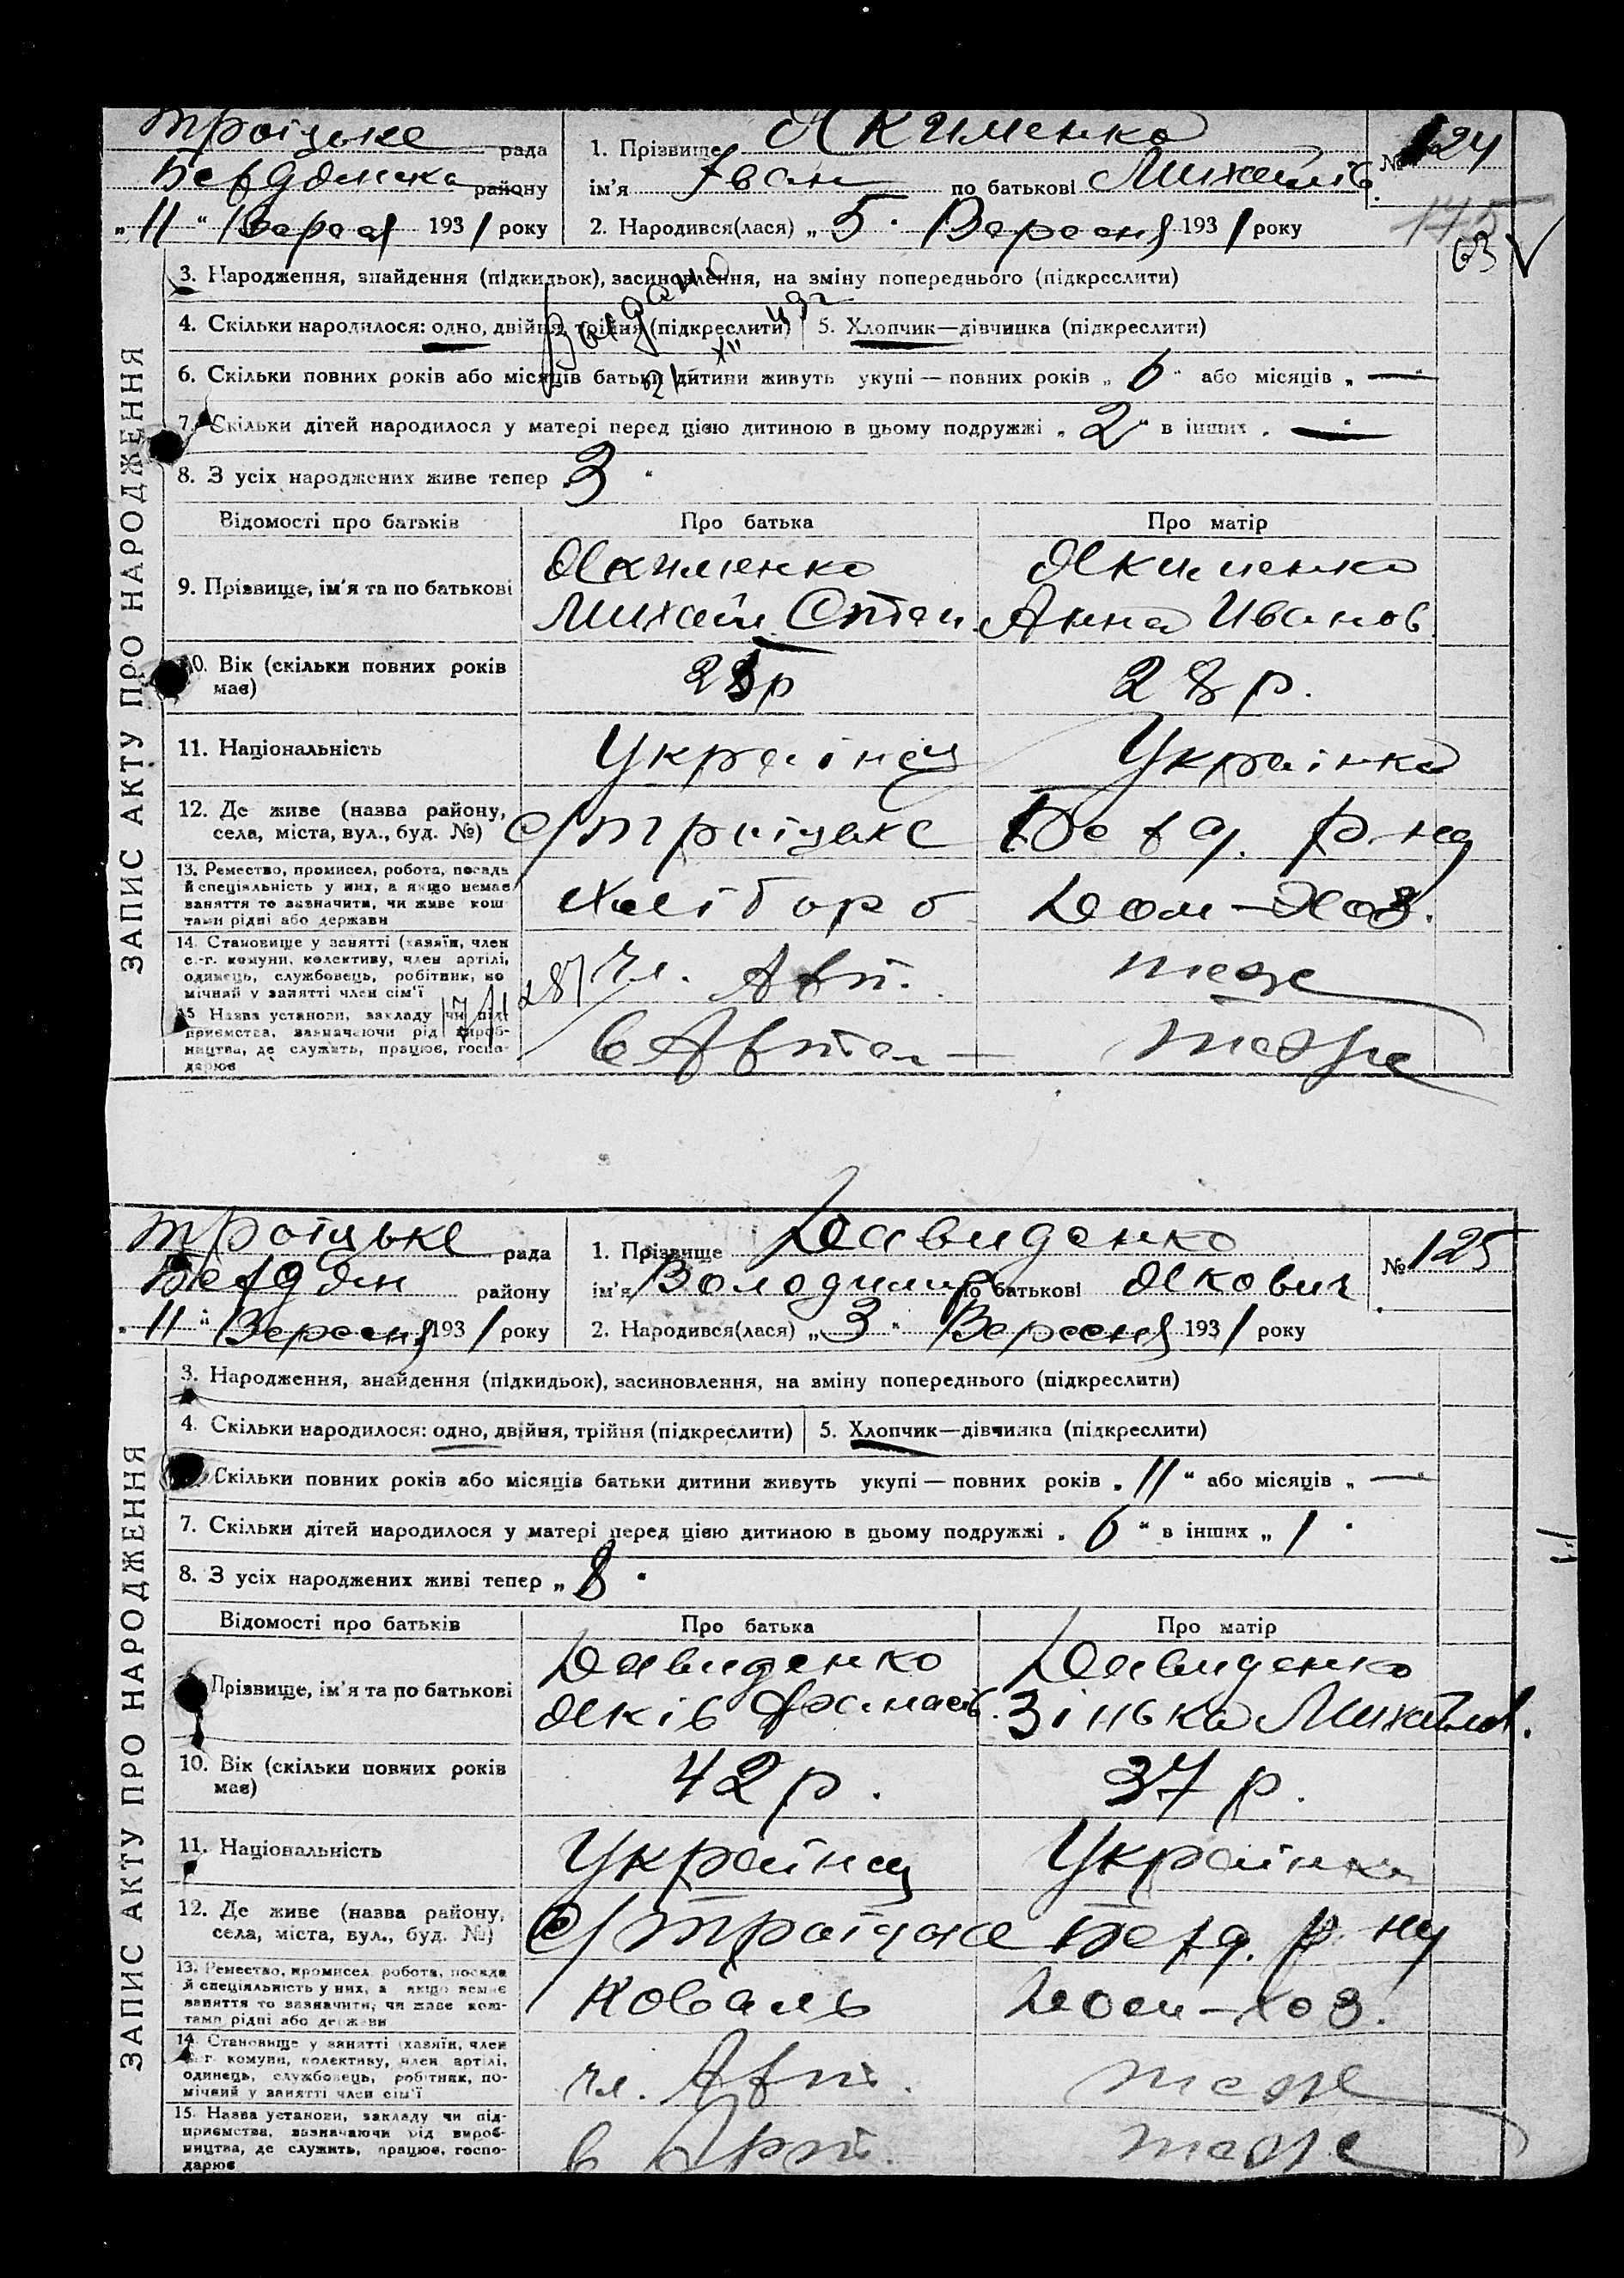 Троіцьке рада
Бердянська району
„ 11 “ Вересня 1931 року
1. Прізвище Якименко
ім'я Іван по батькові Михайлів.
2. Народився(лася) „ 5 “ Вересня 1931 року
№ 124
175
63
3. Народження, знайдення (підкидьок), засиновлення, на зміну попереднього (підкреслити)
4. Скільки народилося: одно, двійня, трійня (підкреслити) 5. Хлопчик—дівчинка (підкреслити)
6. Скільки повних років або місяців батьки дитини живуть укупі — повних років „ 6 “ або місяців „ — “
7. Скільки дітей народилося у матері перед цією дитиною в цьому подружжі „ 2 “ в інших „ — “
8. З усіх народжених живе тепер „ 3 “
ЗАПИС АКТУ ПРО НАРОДЖЕННЯ
Відомості про батьків Про батька Про матір
9. Прізвище, ім'я та по батькові
Якименко Якименко
Михайл Степ. Анна Иванов.
10. Вік (скільки повних років має) 28 р. 
11. Національність Украінец Украінка
12. Де живе (назва району, села, міста, вул., буд. №) с/Троіцьке Берд. р-ну
13. Ремество, промисел, робота, посада
й спеціяльність у них, а якщо немає
заняття то зазначити, чи живе кош
тами рідні або держави
Хлібороб Дом-Хоз.
14. Становище у занятті (хазяїн, член
с.-г. комуни, колективу, член артілі,
одинець, службовець, робітник, по
мічний у занятті член сім'ї
чл. Арт. тоже
15 Назва установи, закладу чи під-
приємства, зазначаючи рід вироб-
ництва, де служить, працює, госпо-
дарює
в Артел— тоже
Троіцьке рада
Бердян району
„ 11 “ Вересня 1931 року
1. Прізвище Давиденко
ім'я Володимир по батькові Якович
2. Народився(лася) „ 3 “ Вересня 1931 року
№ 125
3. Народження, знайдення (підкидьок), засиновлення, на зміну попереднього (підкреслити)
4. Скільки народилося: одно, двійня, трійня (підкреслити) 5. Хлопчик—дівчинка (підкреслити)
Скільки повних років або місяців батьки дитини живуть укупі — повних років „ 11 “ або місяців „ — “
7. Скільки дітей народилося у матері перед цією дитиною в цьому подружжі „ 6 “ в інших „ 1 “
8. З усіх народжених живі тепер „ 8 “
ЗАПИС АКТУ ПРО НАРОДЖЕННЯ
Відомості про батьків Про батька Про матір
Прізвище, ім'я та по батькові
Давиденко Давиденко
Яків Афанасів. Зінька Михайлов.
10. Вік (скільки повних років має) 42 р. 37 р.
11. Національність Украінец Украінка
12. Де живе (назва району, села, міста, вул., буд. №) с/Троіцьке Берд. р-ну
13. Ремество, промисел, робота, посада
й спеціяльність у них, а якщо немає
заняття то зазначити, чи живе кош-
тами рідні або держави
Коваль Дом-хоз.
14. Становище у занятті (хазяїн, член
с.-г. комуни, колективу, член артілі,
одинець, службовець, робітник, по-
мічний у занятті член сім'ї
чл. Арт. тоже
15. Назва установи, закладу чи під-
приємства, зазначаючи рід вироб-
ництва, де служить, працює, госпо-
дарює
в Арт. тоже